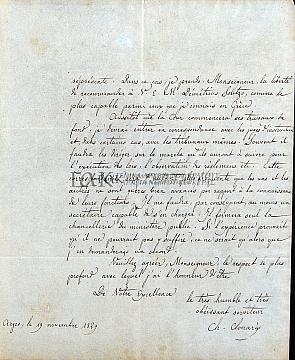 représente. Dans ce cas, je prends, Monseigneur, la liberté
de recommander à V. E. Mr Démétrius Soutzo, comme le
plus capable parmi ceux que je connais en Grèce.
Aussitôt que la Cour commencerait ses travaux de
fond, je devrai entrer en correspondance avec les juges d'instruction
et, dans certains cas, avec les tribunaux mêmes. Souvent il
faudra les diriger sur la marche qu'ils auront à suivre pour
l'exécution des lois, l'observation de règlements etc. Cette
que les uns et les
autres ne sont pas avancés par rapport à la connaissance
de leurs fonctions. Il me faudra, par conséquent, au moins un
secrétaire capable de s'en charger. Il formera seul la
chancellerie du ministère public. Si l'expérience prouvait
qu'il ne pourrait pas y suffire, ce ne serait qu'alors que
j'en demanderais un autre.
Veuillez agréer, Monseigneur, le respect le plus
profond avec lequel j'ai l'honneur d'être
De Votre Excellence
le très humble et très
obéissant serviteur
Argos, le 19 novembre
Ch. Clonarès